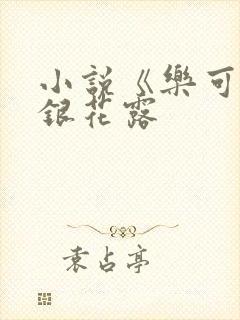 小説《樂可
銀花露
袁占亭